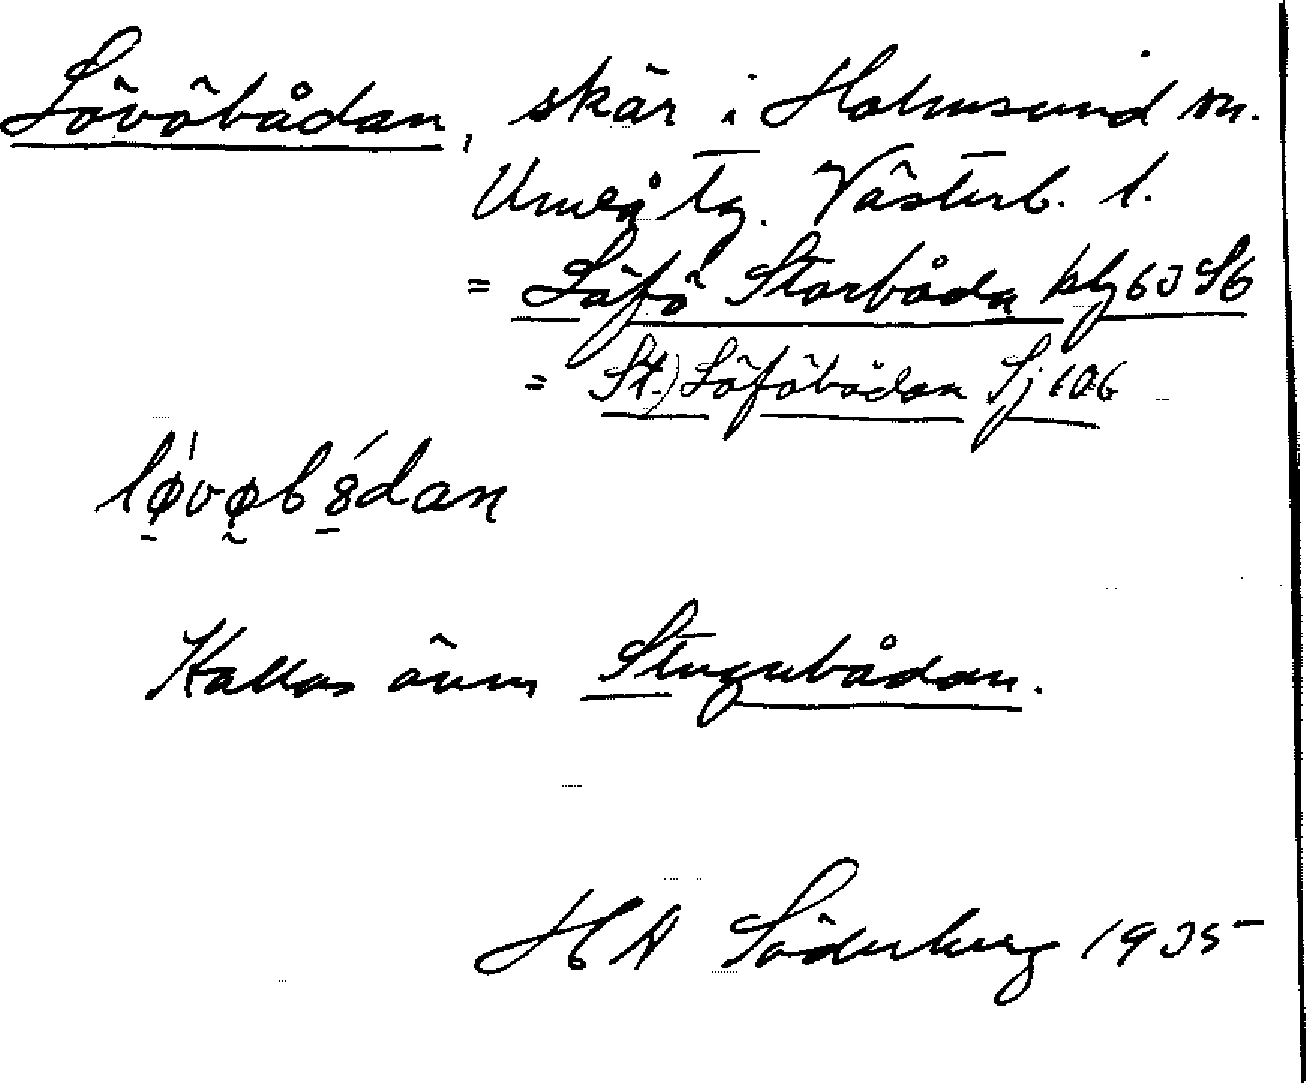 Lövöbådan, skär i Holmsund sn.
Umeå tg. Västerb. l.
= Löfö Storbåda blg 63 S6
= St.) Löföbådan Sj 106
lǿ̠vø̰bȣ̠́dan
Kallas även Stugubådan.
H A Söderberg 1935